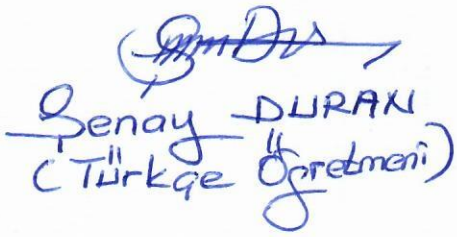 Şenay DURAN
(Türkçe Öğretmeni)